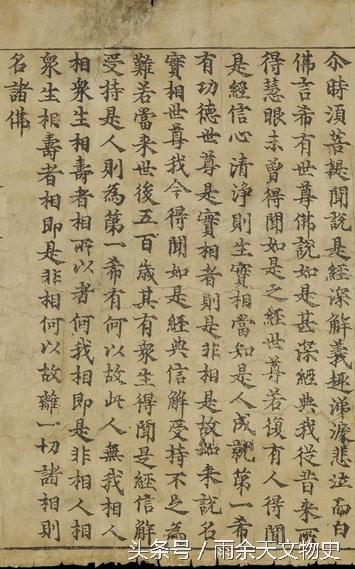 尒時須菩提聞說是經深解義趣涕淚悲泣而白
佛言希有世尊佛說如是甚深經典我從昔來所
得慧眼未曾得聞如是之經世尊若復有人得聞
是經信心清淨則生實相當如是人成就第一希
有功德世尊是實相者則是非相是故如来說名
實相世尊我今得聞如是經典信解受持不足為
難若當来世後五百歲其有衆生得聞是經信解
受持是人則為第一希有何以故此人無我相人
相衆生相壽者相所以者何我相即是非相人相
衆生相壽者相即是非相何以故離一切諸相則
名諸佛
头条号 / 雨余天文物史